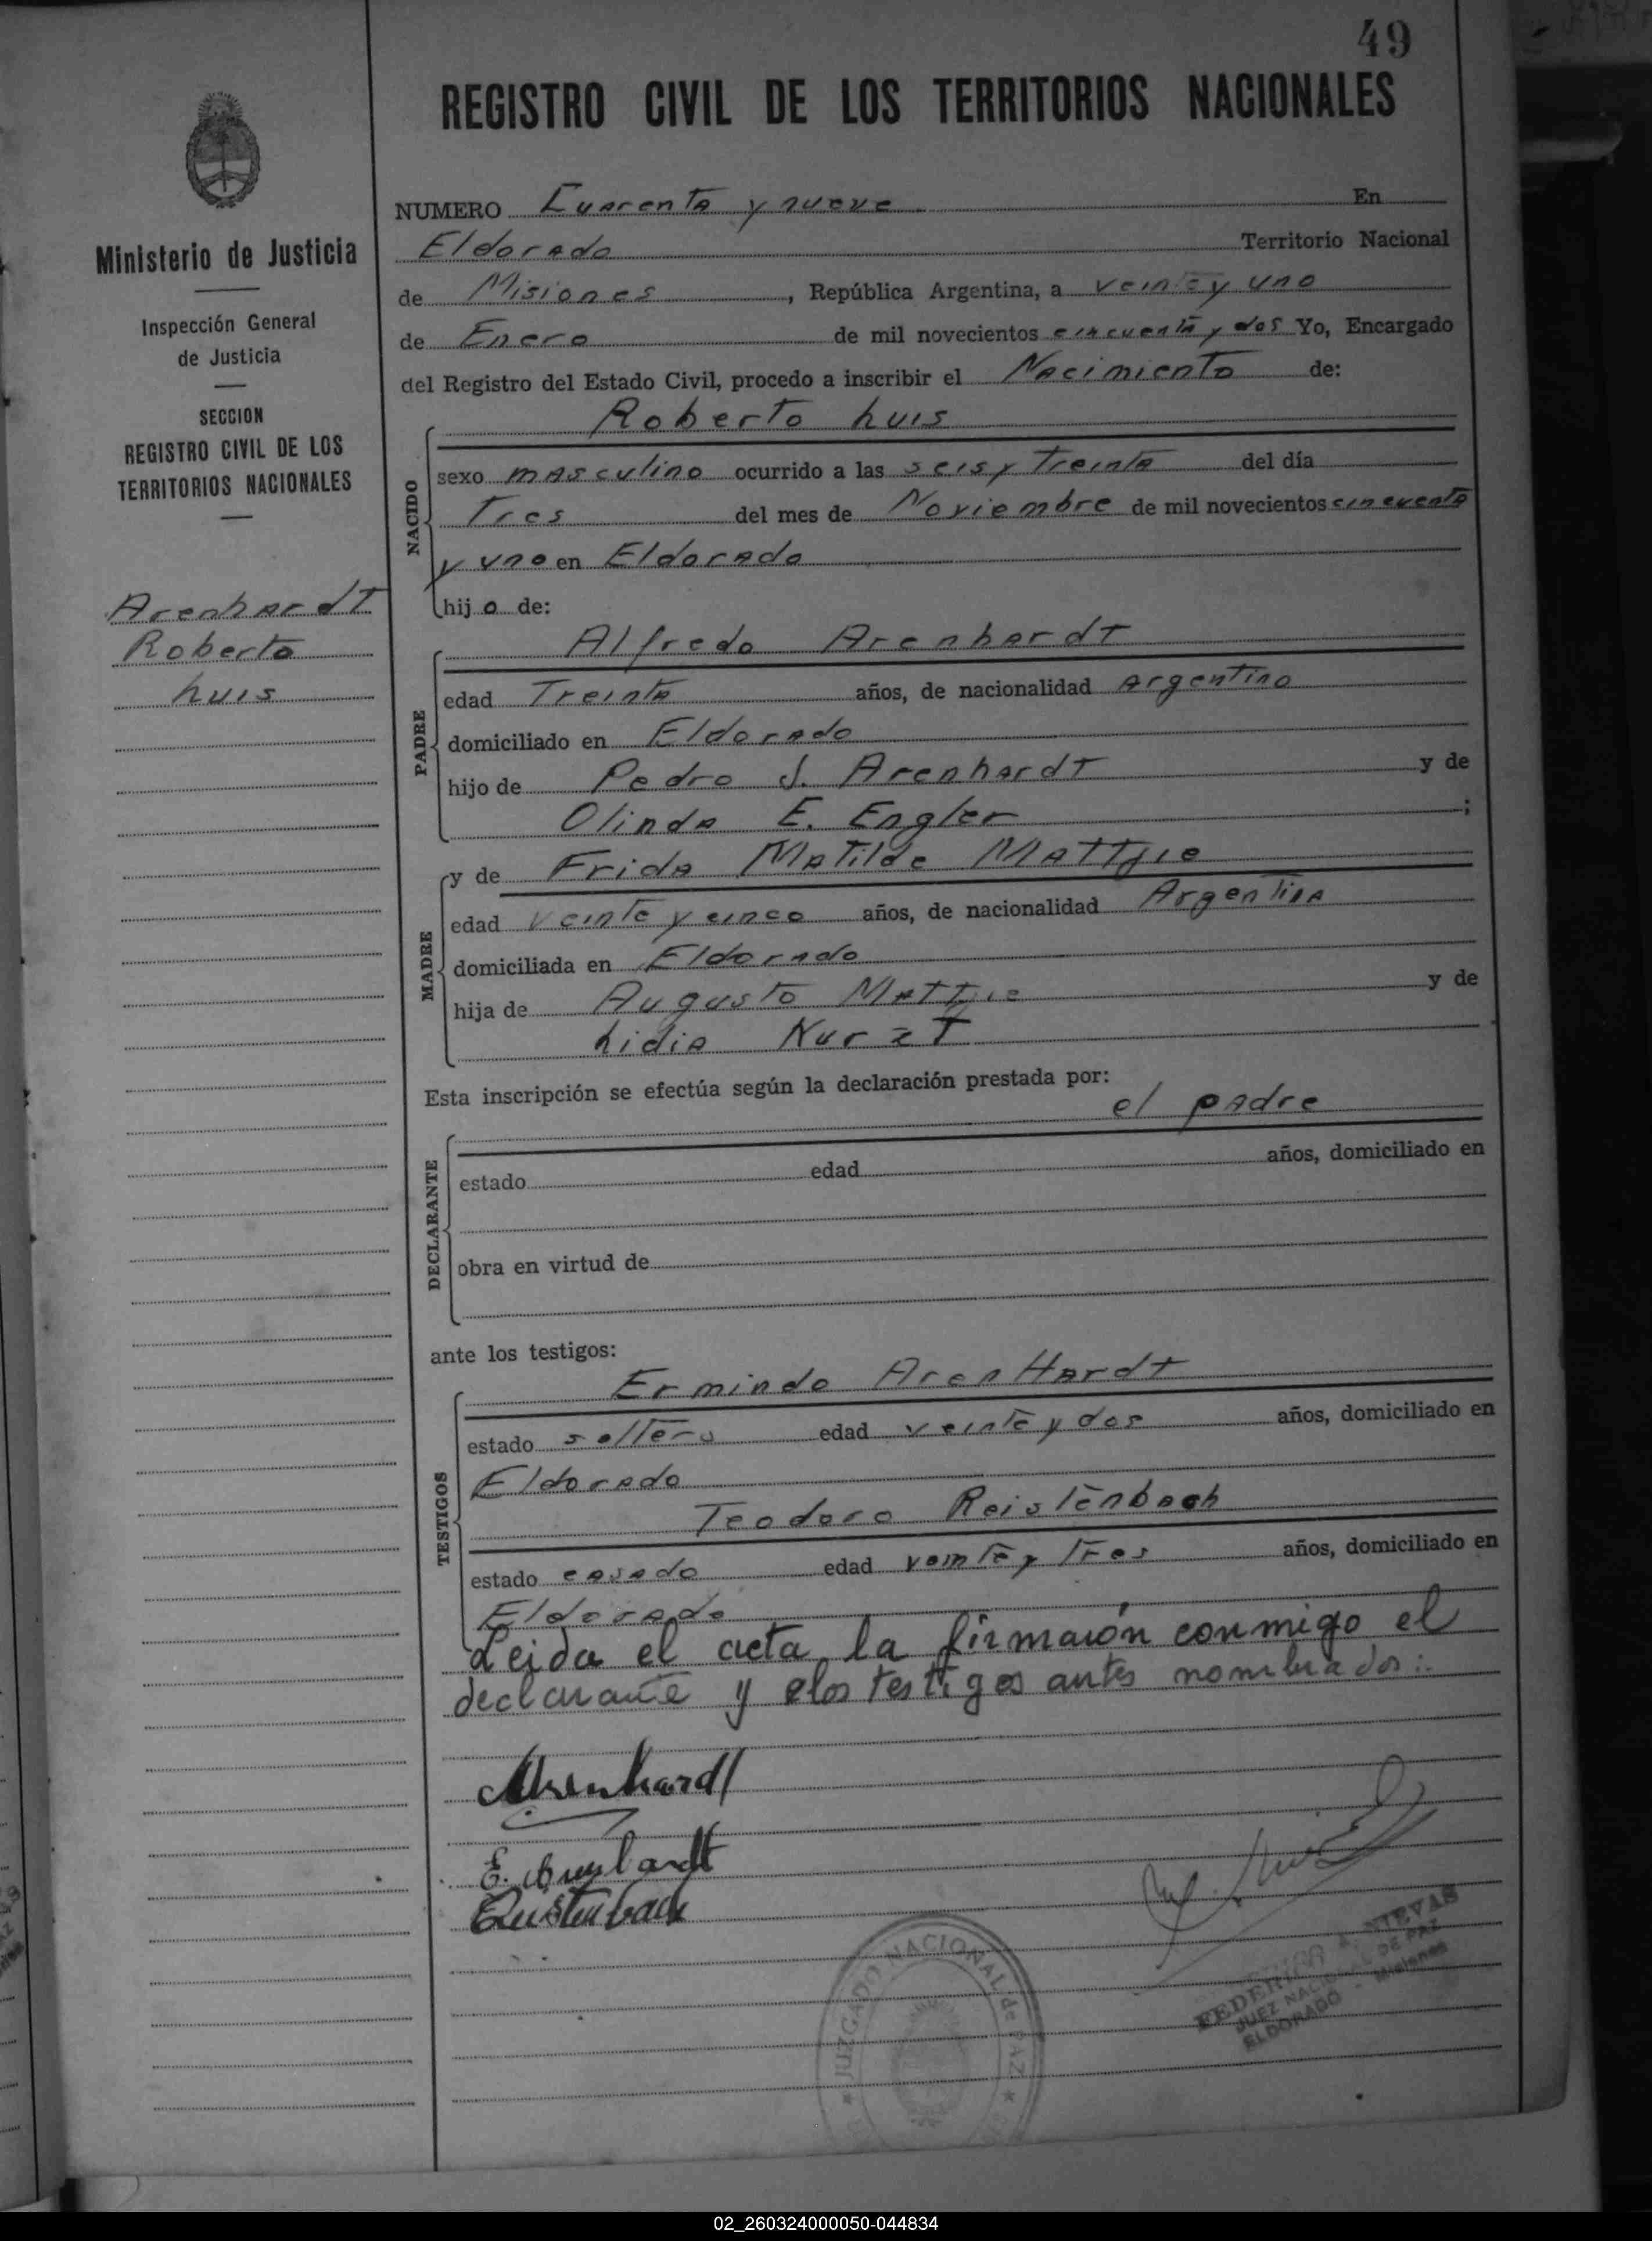 49
REGISTRO CIVIL DE LOS TERRITORIOS NACIONALES
Ministerio de Justicia
Inspección General
de Justicia
SECCION
REGISTRO CIVIL DE LOS
TERRITORIOS NACIONALES
Arenhardt
Roberto
Luis
NUMERO Cuarenta y nueve En
Eldorado Territorio Nacional
de Misiones, República Argentina, a veinte y uno
de Enero de mil novecientos cincuenta y dos Yo, Encargado
del Registro del Estado Civil, procedo a inscribir el Nacimiento de:
NACIDO
Roberto Luis
sexo masculino ocurrido a las seis y Treinta del día
Tres del mes de Noviembre de mil novecientos cincuenta
y uno en Eldorado
hijo de:
PADRE
Alfredo Arenhardt
edad Treinta años, de nacionalidad Argentino
domiciliado en Eldorado
hijo de Pedro J. Arenhardt y de
Olinda E. Engler;
MADRE
y de Frida Matilde
edad veinte y cinco años, de nacionalidad Argentina
domiciliada en Eldorado
hija de Augusto y de
Lidia Kurzt
Esta inscripción se efectúa según la declaración prestada por:
DECLARANTE
el padre
estado edad años, domiciliado en
obra en virtud de
ante los testigos:
TESTIGOS
Ermindo ArenHardt
estado soltero edad veinte y dos años, domiciliado en
Eldorado
Teodoro Reistenbach
estado casado edad veinte y Tres años, domiciliado en
Eldorado
Leida el acta, la firmaron conmigo el
declarante y los testigos antes nombrados:.
Arenhardt
E. Arenhardt
Reistenbach
JUZGADO NACIONAL de PAZ
FEDERICO A. NIEVAS
JUEZ NACIONAL DE PAZ
ELDORADO - Misiones
02_260324000050-044834